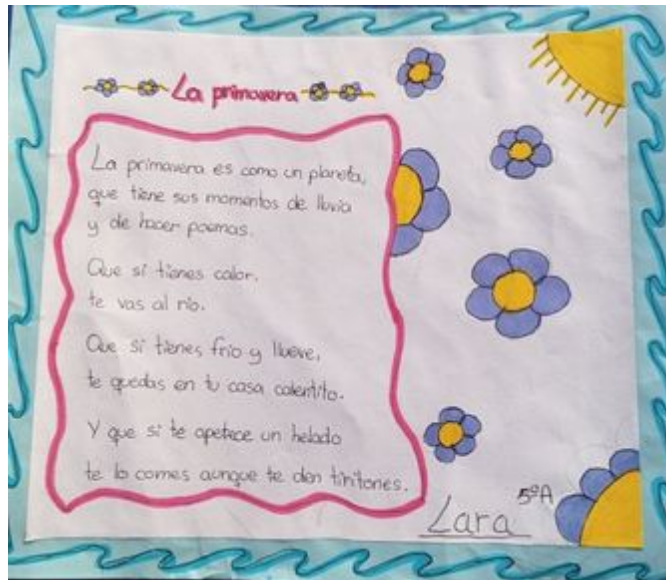 La primavera
La primavera es como un planeta,
que tiene sus momentos de lluvia
y de hacer poemas.
Que si tienes calor,
te vas al río.
Que si tienes frío y llueve,
te quedas en tu casa calentito.
Y que si te apetece un helado
te lo comes aunque te den tiritones.
5ºA
Lara